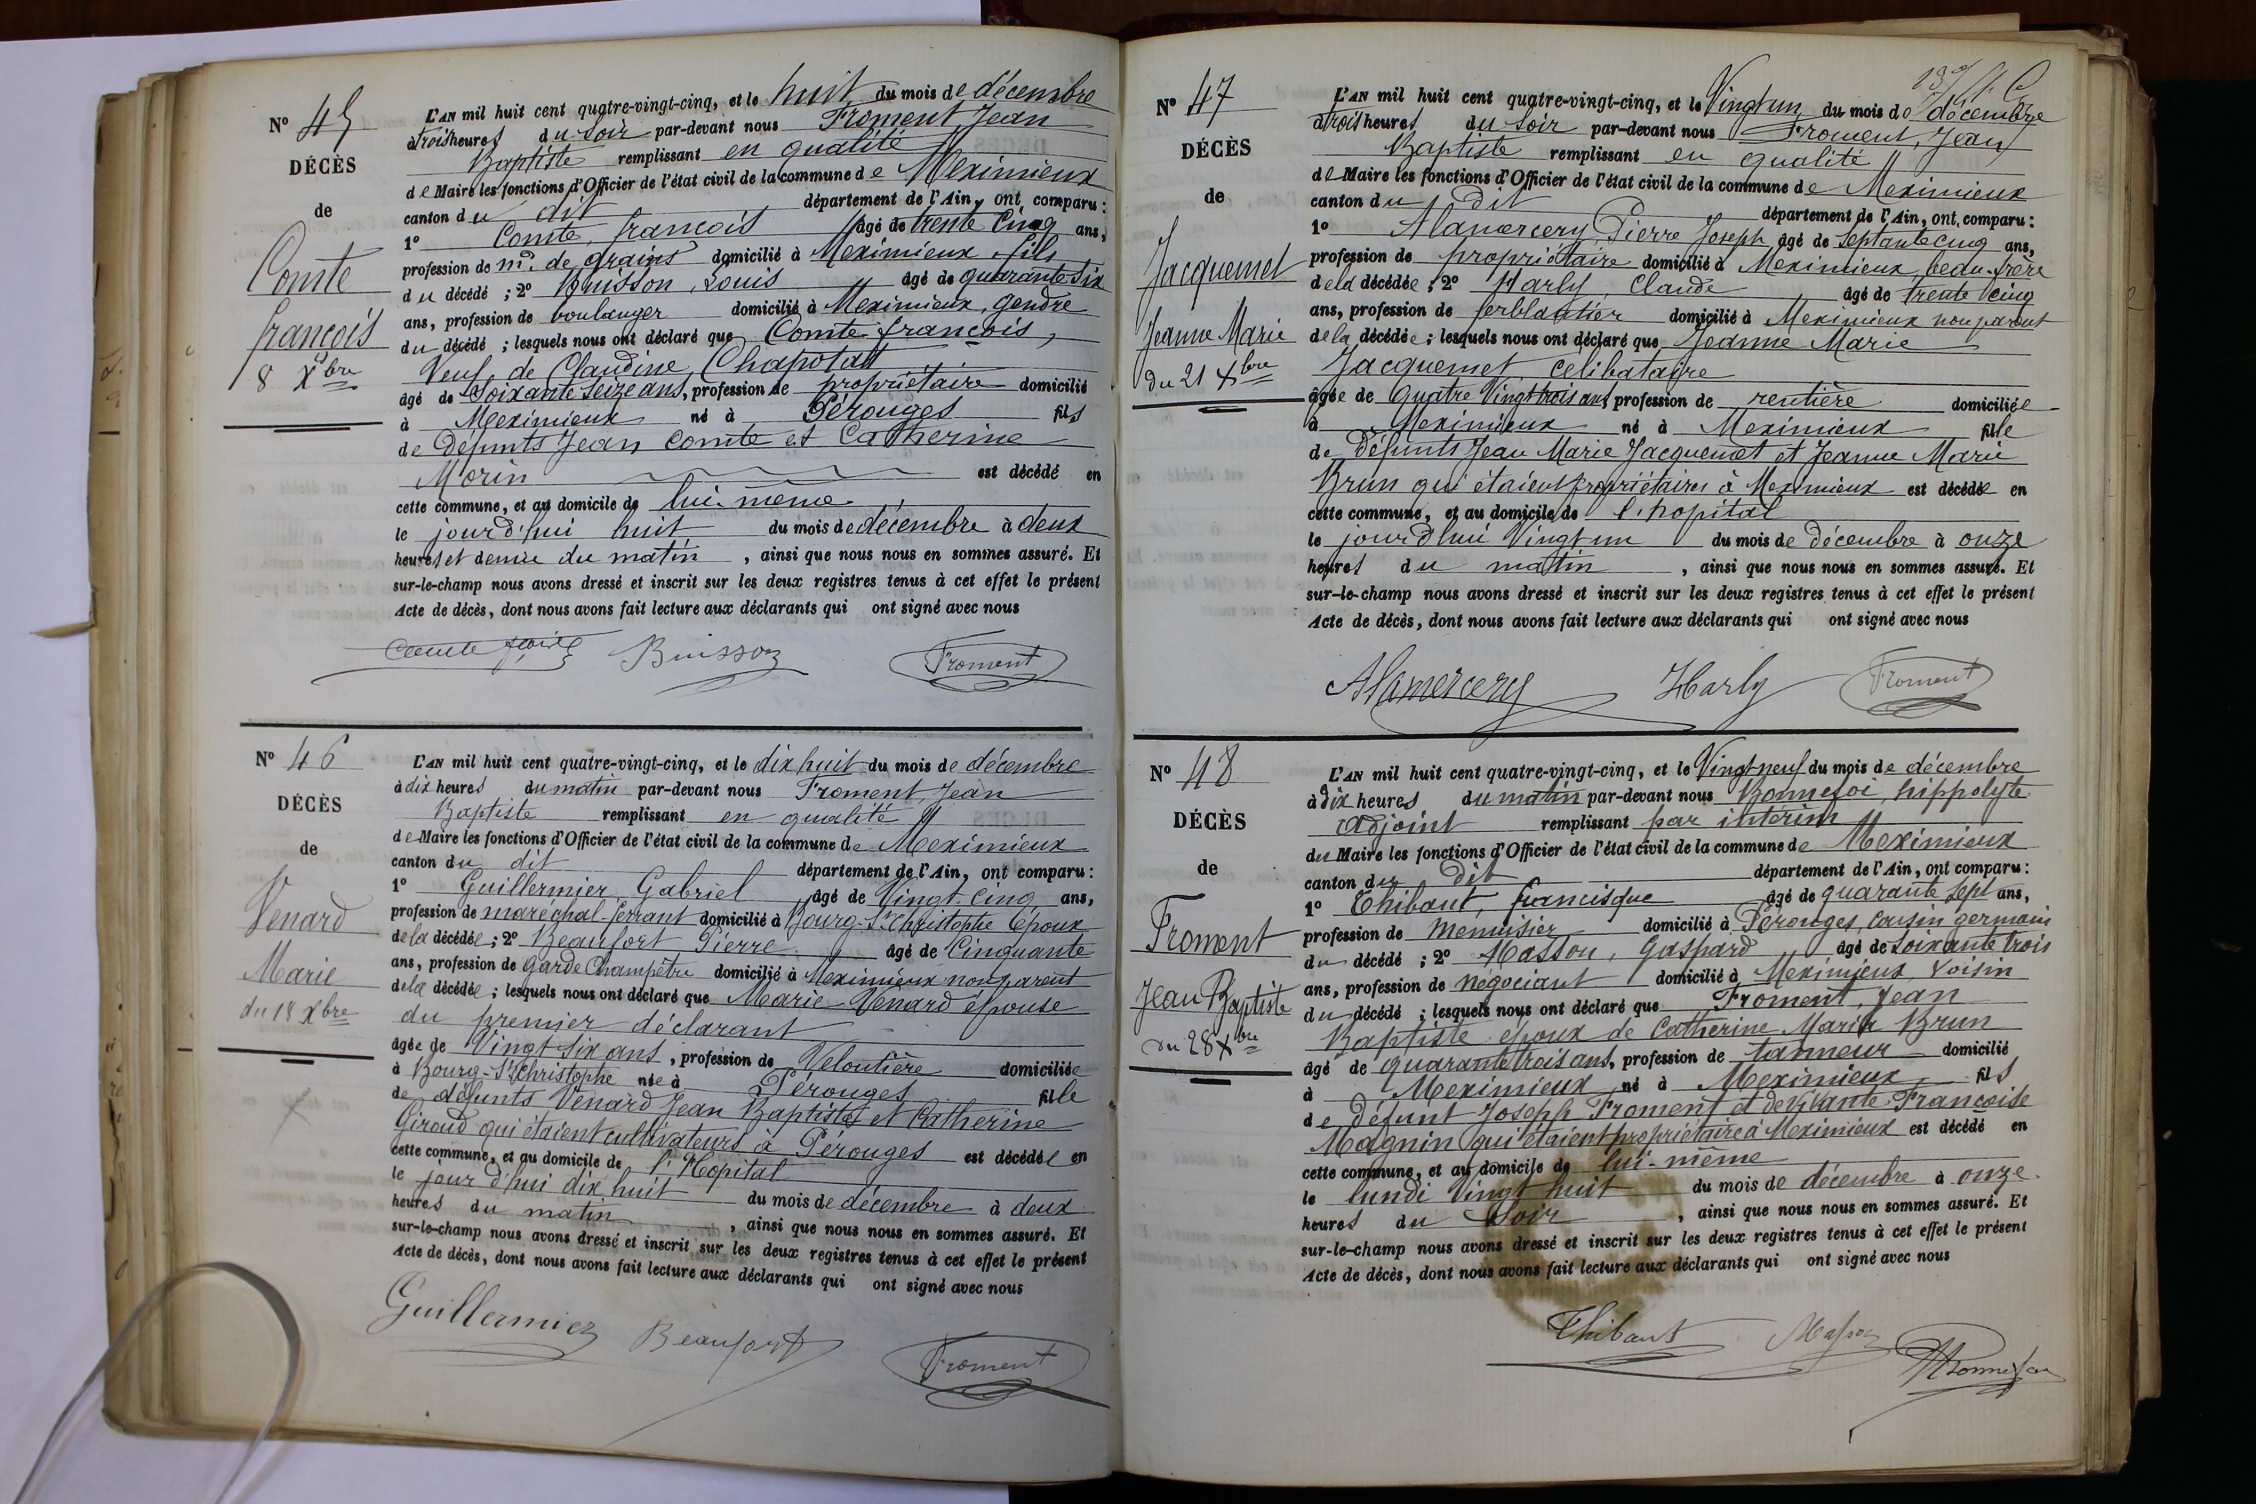 N° 45
DÉCÈS
de
Comte
françois
8 Xbre
L'AN mil huit cent quatre-vingt-cinq, et le huit du mois de décembre
à trois heures du soir par-devant nous Froment Jean
Baptiste remplissant en qualité
de Maire les fonctions d'Officier de l'état civil de la commune de Meximieux
canton du dit département de l'Ain, ont comparu :
1° Comte, françois âgé de trente cinq ans,
profession de md. de grains domicilié à Meximieux, fils
du décédé ; 2° Buisson, Louis âgé de quarante six
ans, profession de boulanger domicilié à Meximieux, gendre
du décédé ; lesquels nous ont déclaré que Comte françois,
Veuf de Claudine Chapolat
âgé de Soixante seize ans, profession de propriétaire domicilié
à Meximieux né à Pérouges fils
de défunts Jean Comte et Catherine
Morin est décédé en
cette commune, et au domicile de lui-même
le jourd'hui huit du mois de décembre à deux
heures et demie du matin, ainsi que nous nous en sommes assuré. Et
sur-le-champ nous avons dressé et inscrit sur les deux registres tenus à cet effet le présent
Acte de décès, dont nous avons fait lecture aux déclarants qui ont signé avec nous
Comte Buisson Froment
N° 46
DÉCÈS
de
Venard
Marie
du 18 Xbre
L'AN mil huit cent quatre-vingt-cinq, et le dix huit du mois de décembre
à dix heures du matin par-devant nous Froment, Jean
Baptiste remplissant en qualité
de Maire les fonctions d'Officier de l'état civil de la commune de Meximieux
canton du dit département de l'Ain, ont comparu :
1° Guillermier Gabriel âgé de Vingt-cinq ans,
profession de maréchal-ferrant domicilié à Bourg-St Christophe Epoux
de la décédée ; 2° Beaufort Pierre âgé de Cinquante
ans, profession de garde Champêtre domicilié à Meximieux non parent
de la décédée ; lesquels nous ont déclaré que Marie Venard épouse
du premier déclarant
âgée de Vingt six ans, profession de Veloutière domiciliée
à Bourg-St Christophe née à Pérouges fille
de défunts Venard Jean Baptiste et Catherine
Giroud qui étaient cultivateurs à Pérouges est décédée en
cette commune, et au domicile de l'Hopital
le jour d'hui dix huit du mois de décembre à deux
heures du matin, ainsi que nous nous en sommes assuré. Et
sur-le-champ nous avons dressé et inscrit sur les deux registres tenus à cet effet le présent
Acte de décès, dont nous avons fait lecture aux déclarants qui ont signé avec nous
Guillermier Beaufort Froment
N° 47
DÉCÈS
de
Jacquemet
Jeanne Marie
du 21 Xbre
L'AN mil huit cent quatre-vingt-cinq, et le Vingt un du mois de décembre
à trois heures du soir par-devant nous Froment, Jean
Baptiste remplissant en qualité
de Maire les fonctions d'Officier de l'état civil de la commune de Meximieux
canton du Dit département de l'Ain, ont comparu :
1° Alamercery Pierre Joseph âgé de septante cinq ans,
profession de propriétaire domicilié à Meximieux, beau-frère
de la décédée ; 2° Harly Claude âgé de trente cinq
ans, profession de ferblantier domicilié à Meximieux non parent
de la décédée ; lesquels nous ont déclaré que Jeanne Marie
Jacquemet celibataire
âgée de Quatre Vingt trois ans, profession de rentière domiciliée
à Meximieux né à Meximieux fille
de Défunts Jean Marie Jacquemet et Jeanne Marie
Brun qui étaient propriétaires à Meximieux est décédée en
cette commune, et au domicile de l'hopital
le jourd'hui Vingt un du mois de décembre à onze
heures du matin, ainsi que nous nous en sommes assuré. Et
sur-le-champ nous avons dressé et inscrit sur les deux registres tenus à cet effet le présent
Acte de décès, dont nous avons fait lecture aux déclarants qui ont signé avec nous
Alamercery Harly Froment
N° 48
DÉCÈS
de
Froment
Jean Baptiste
du 28 Xbre
L'AN mil huit cent quatre-vingt-cinq, et le Vingt neuf du mois de décembre
à dix heures du matin par-devant nous Bonnefoi, hippolyte
Adjoint remplissant par intérim
du Maire les fonctions d'Officier de l'état civil de la commune de Meximieux
canton du Dit département de l'Ain, ont comparu :
1° Thibaut, francisque âgé de quarante sept ans,
profession de Menuisier domicilié à Pérouges, cousin germain
du décédé ; 2° Masson, Gaspard âgé de soixante trois
ans, profession de négociant domicilié à Meximieux Voisin
du décédé ; lesquels nous ont déclaré que Froment, Jean
Baptiste époux de Catherine Marie Brun
âgé de quarante trois ans, profession de tanneur domicilié
à Meximieux né à Meximieux fils
de défunt Joseph Froment et de Vivante Françoise
Magnin qui étaient propriétaire à Meximieux est décédé en
cette commune, et au domicile de lui-même
le lundi Vingt huit du mois de décembre à onze
heures du Soir, ainsi que nous nous en sommes assuré. Et
sur-le-champ nous avons dressé et inscrit sur les deux registres tenus à cet effet le présent
Acte de décès, dont nous avons fait lecture aux déclarants qui ont signé avec nous
Thibaut Masson Bonnefoi